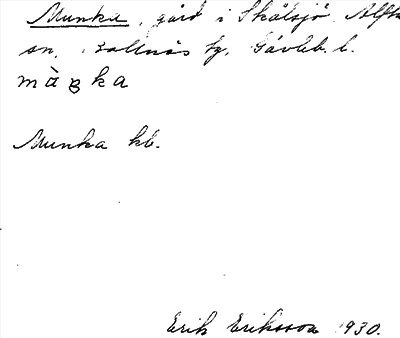 Munka, gård i Skålsjö, Alfta
sn, Bollnäs tg, Gävleb. l.
màŋka
Munka kb.
Erik Eriksson 1930.